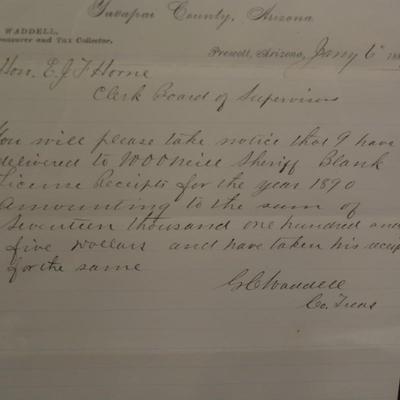 Yavapai County, Arizona
WADDELL,
Treasurer and Tax Collector.
Prescott, Arizona, Jany 6" 18
Hon. E.J.F. Horne
Clerk Board of Supervisors
You will please take notice that I have
delivered to W O O'Neill Sheriff Blank
License Receipts for the year 1890
Amounting to the sum of
Seventeen thousand one hundred and
five Dollars and have taken his receip
for the same
G C Waddell
Co. Treas